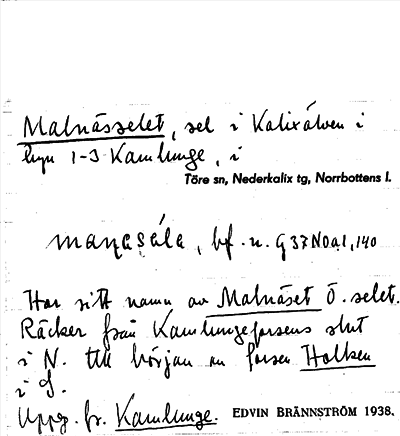 Malnässelet, sel i Kalixälven i
byn 1-3 Kamlunge, i
Töre sn, Nederkalix tg, Norrbottens l.
bf. n. G37N0a1,140
Har sitt namn av Malnäset Ö. selet.
Räcker från Kamlungeforsens slut
i N. till början av forsen Holken
i S.
Uppg. fr. Kamlunge. EDVIN BRÄNNSTRÖM 1938.